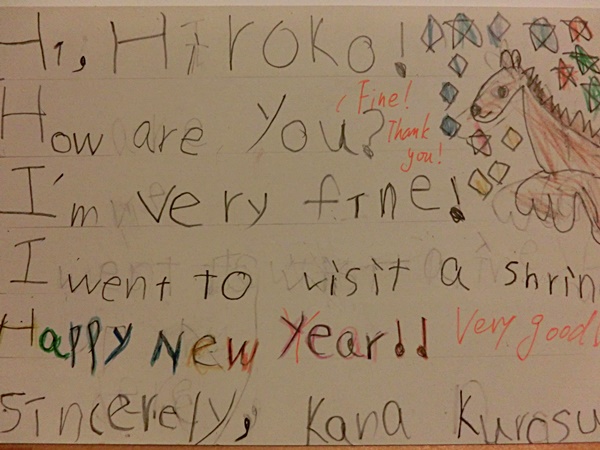 Hi, Hiroko!
How are you?
Fine!
Thank
you!
I'm very fine!
I went to visit a shrin
Happy New Year!!
Very good
Sincerely, Kana Kurosu